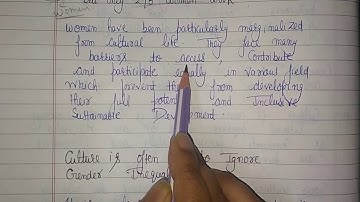 women
women have been particularly marginalized
from cultural life. They face many
barriers to access Contribute
and participate equally in various field
which prevent from developing
their full and Inclusive
Sustainable Development.
Culture is often to Ignore
Gender